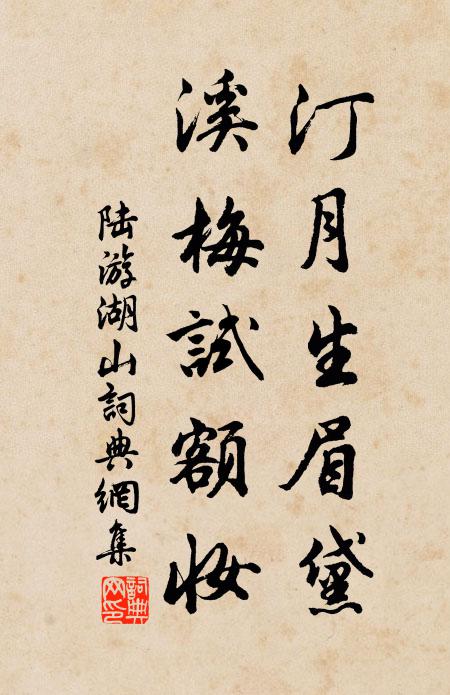 汀月生眉黛
溪梅試額妝
陆游湖山詞典網集
詞典网印